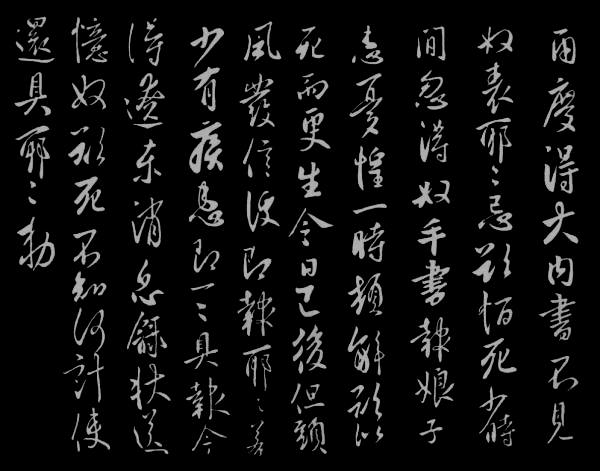 兩度得大内書不見
奴表耶〻忌欲恒死少時
間忽得奴手書報娘子
患憂惶一時頓解欲似
死而更生今日已後但頭
風發信便即報耶〻若
少有疾患即一〻具報今
得遼東消息錄狀送
憶奴欲死不知何計使
還具耶〻勅